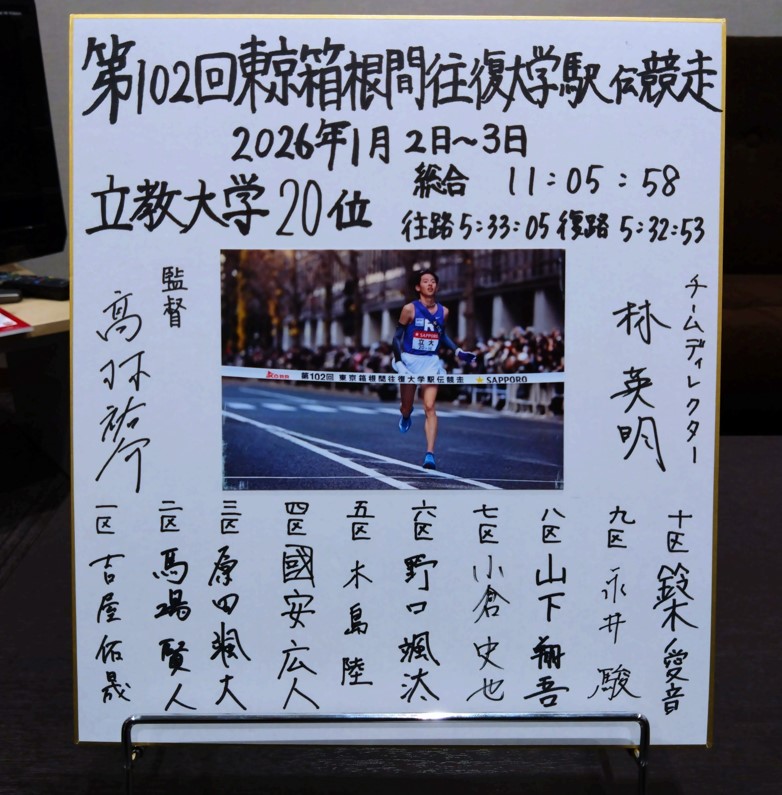 第102回東京箱根間往復大学駅伝競走
2026年1月2日～3日
立教大学20位
総合 11:05:58
往路5:33:05 復路 5:32:53
監督
高林祐介
チームディレクター
林英明
第102回 東京箱根間往復大学駅伝競走
SAPPORO
SAPPORO
立大
一区 吉屋佑晟
二区 馬場賢人
三区 原田颯大
四区 國安広人
五区 木島陸
六区 野口颯汰
七区 小倉史也
八区 山下翔吾
九区 永井駿
十区 鈴木愛音